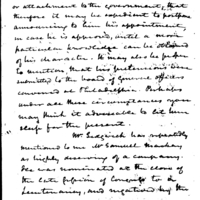 or attachment to the government, that
therefore it may be expedient to postpone
announcing to him his appointment,
in case he is approved, until a more
particular knowledge can be obtained
of his character. It may also be proper
to mention, that his pretensions been
submitted to the board of General officers
convened at Philadelphia. Perhaps
under all these circumstances you
may think it adviseable to let him
sleep for the present.
Mr. Sedgwick has repeatedly
mentioned to me Mr. Samuel Mackay
as highly deserving of a company.
He was nominated at the close
of the late session of Congress to a
Lieutenancy, and negatived by the